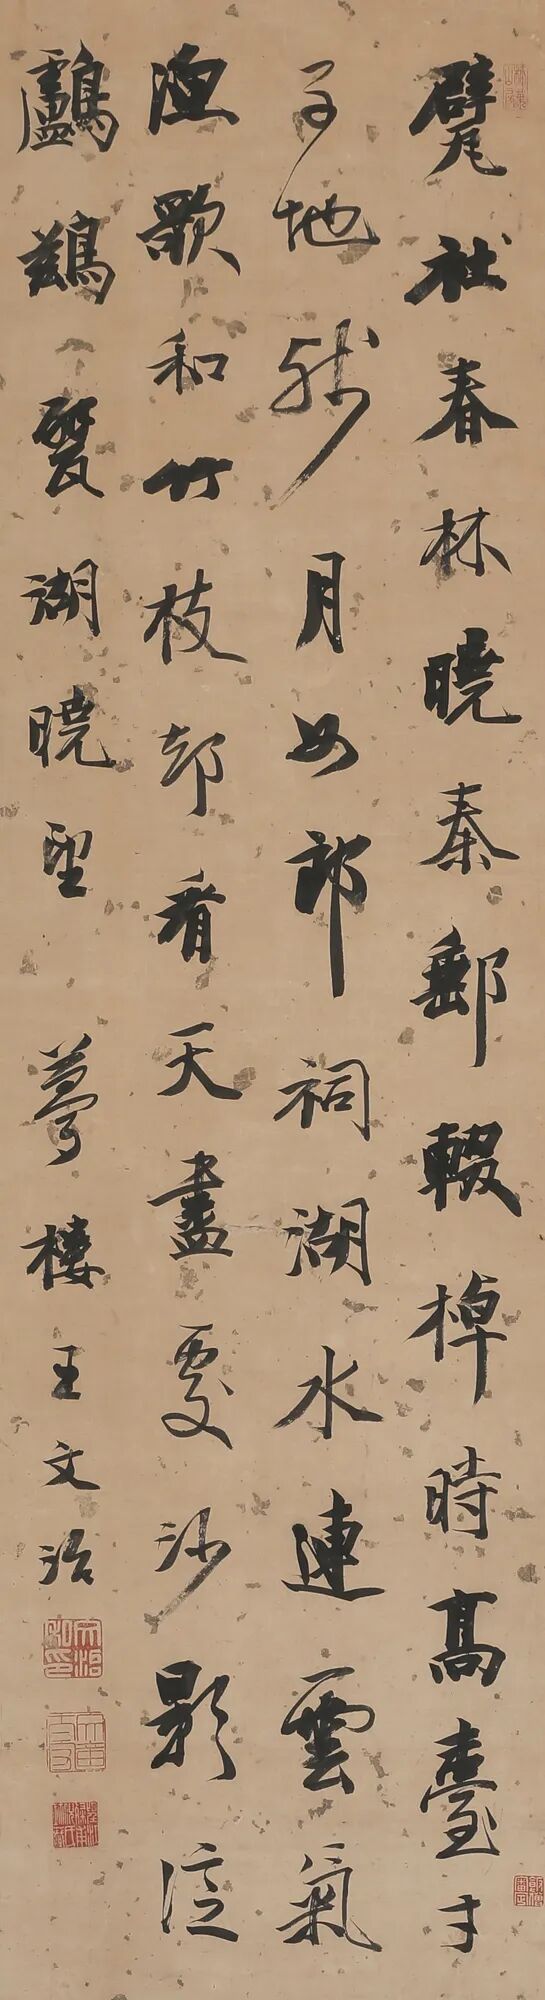 甓社春林曉秦郵輟棹時高臺才
子地殘月女郎祠湖水連雲氣
漁歌和竹枝却看天盡處沙影泛
鸕鷀 甓湖曉望 夢樓王文治